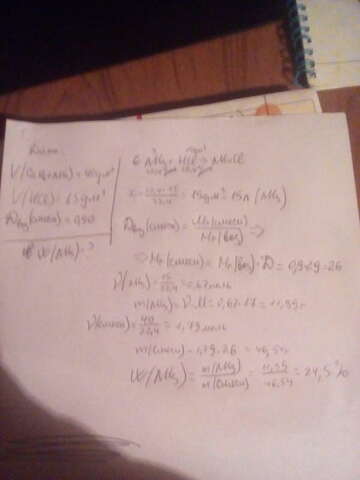 Дано:
V(C₂H₄+NH₃) = 40 дм³
V(HCl) = 15 дм³
D возд (смеси) = 0,90
W(NH₃) - ?
NH₃ + HCl → NH₄Cl
= 15 дм³ = 15 л (NH₃)
D возд (смеси) = Mr(смеси) / Mr(возд) ⇒
⇒ Mr(смеси) = Mr(возд) · D = 0,9·29 = 26
ν(NH₃) = 15 / 22,4 = 0,67 моль
m(NH₃) = ν·M = 0,67·17 = 11,39 г
ν(смеси) = 40 / 22,4 = 1,79 моль
m(смеси) = 1,79·26 = 46,54 г
W(NH₃) = m(NH₃) / m(смеси) = 11,39 / 46,54 = 24,5%